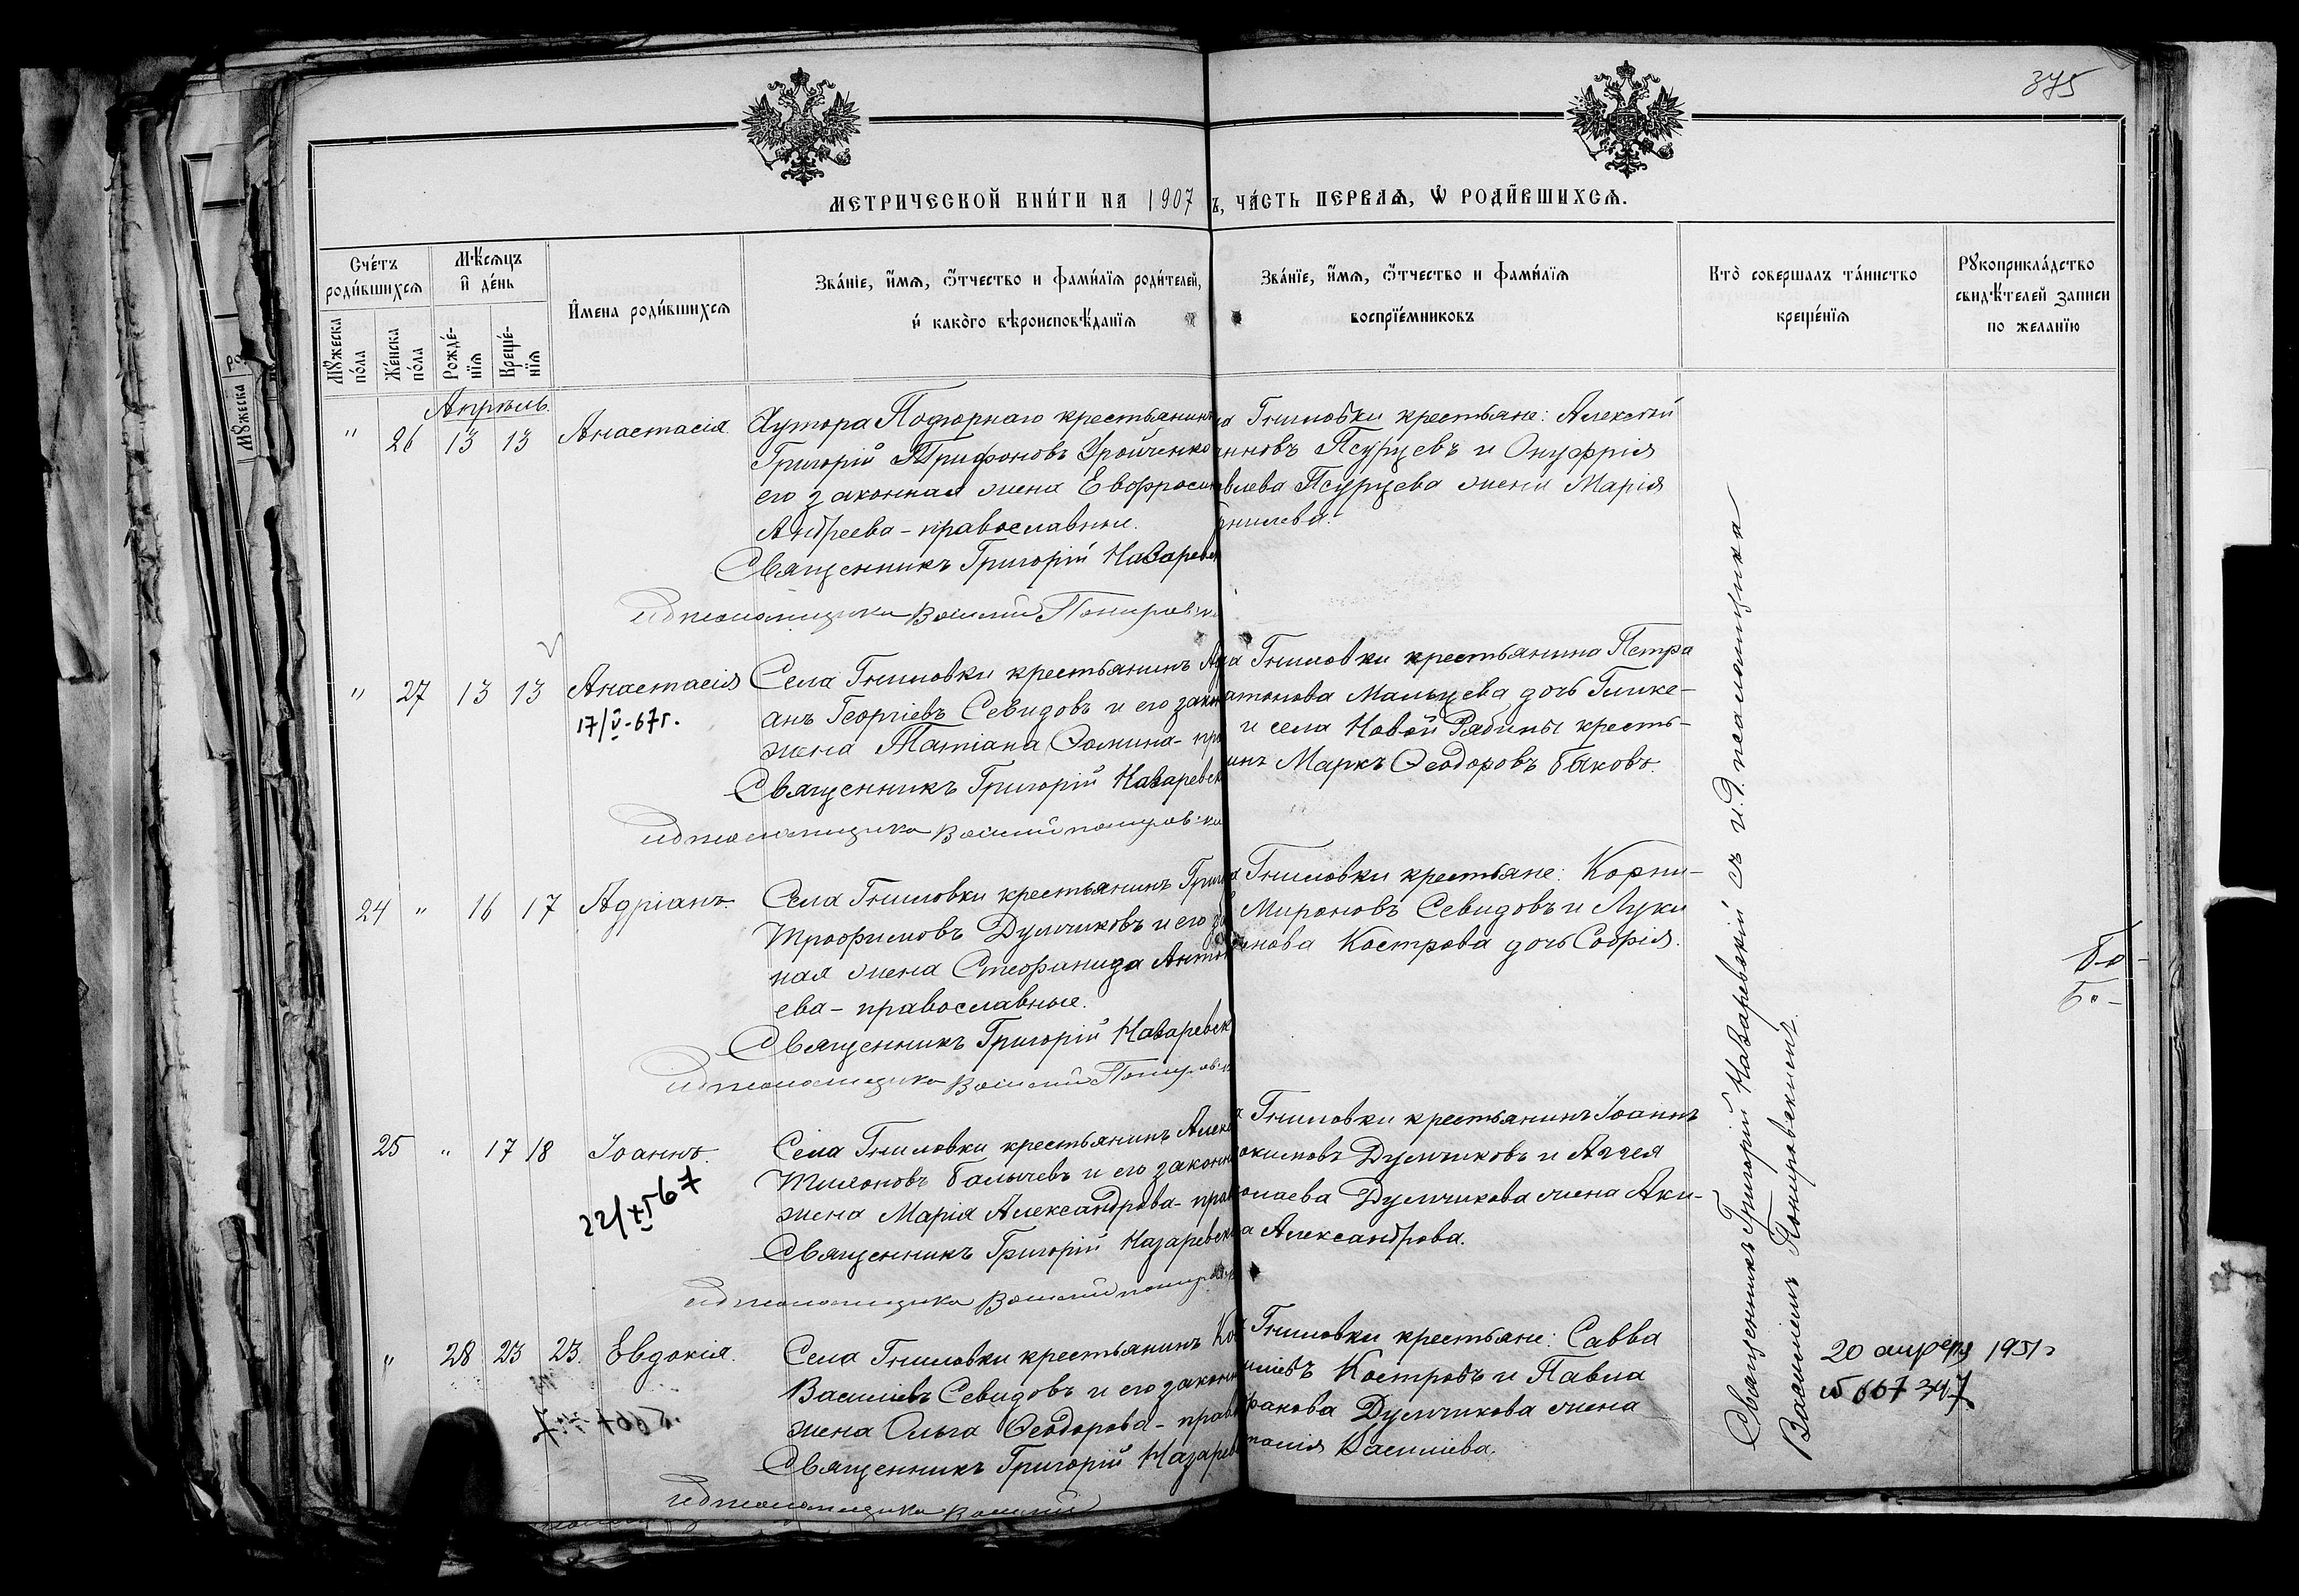 375
МЕТРИЧЕСКОЙ КНИГИ НА 1907
Ъ, ЧАСТЬ ПЕРВАЯ, Ѡ РОДИВШИХСЯ.
Счетъ родившихся
Мѣсяцъ и день
Мужеска пола
Женска пола
Рождения
Крещения
Имена родившихся
Званіе, имя, отчество и фамилія родителей,
и какого вѣроисповѣданія
Званіе, имя, отчество и фамилія
воспріемниковъ
Кто совершалъ таинство
крещенія
Рукоприкладство
свидѣтелей записи
по желанію
Апрѣль.
" 26 13 13 Анастасія.
Хутора Подгорнаго крестьянинъ
Григорій Трифоновъ
его законная жена Евфроси
Андреева - православные.
Священникъ Григорій Назаревск
ид псаломщика Василий
Гниловки крестьяне: Алексѣй
Псурцевъ и Онуфрія
Псурцева жена Марія
" 27 13 13 Анастасія
17/V-67г.
Села Гниловки крестьянинъ
анъ Георгіевъ Севидовъ и его закон
жена Татіана Ѳомина - пр
Священникъ Григорій Назаревск
ид псаломщика Василий
Гниловки крестьянина Петра
Мальцева дочь Глике-
и села Новой Рябины кресть-
инъ Маркъ Ѳеодоровъ Быковъ.
24 " 16 17 Адріанъ.
Села Гниловки крестьянинъ Григ
Трофимовъ Думчиковъ и его за
ная жена Стефанида Анто
ева - православные.
Священникъ Григорій Назаревск
ид псаломщика Василий
Гниловки крестьяне: Корни-
Мироновъ Севидовъ и Луки
Кострова дочь Софія.
25 " 17 18 Іоаннъ.
22/XI 67
Села Гниловки крестьянинъ Алек
Тихоновъ Балычевъ и его законн
жена Марія Александрова - прав
Священникъ Григорій Назаревск
ид псаломщика Василий
Гниловки крестьянинъ Іоаннъ
Думчиковъ и Аггея
Думчикова жена Аки-
Александрова.
" 28 23 23. Евдокія.
Села Гниловки крестьянинъ
Васильевъ Севидовъ и его законн
жена Ольга Ѳеодорова - прав
Священникъ Григорій Назарев
ид псаломщика Василий
Гниловки крестьяне: Савва
Костровъ и Павла
Думчикова жена
Василіева.
Священникъ Григорій Назаревскій съ и.д. псаломщика
Василіемъ
20 апреля 1951г
№ 667347